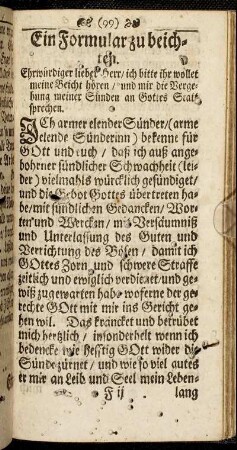 (99)
Ein Formular zu beich-
ten.
Ehrwürdiger lieber Herr/ ich bitte ihr wollet
meine Beicht hören / und mir die Verge-
bung meiner Sünden an Gottes Statt
sprechen.
ICh armer elender Sünder/ (arme
elende Sünderinn) bekenne für
GOtt und euch / daß ich auß ange-
bohrner sündlicher Schwachheit (lei-
der) vielmahls würcklich gesündiget/
und die Gebot Gottes übertreten ha-
be/ mit sündlichen Gedancken/ Wor-
ten und Wercken / mit Versäumniß
und Unterlassung des Guten und
Verrichtung des Bösen / damit ich
GOttes Zorn und schwere Straffe
zeitlich und ewiglich verdienet/und ge-
wiß zugewarten habe woferne der ge-
rechte GOtt mit mir ins Gericht ge-
hen wil. Das kräncket und betrübet
mich hertzlich / insonderheit wenn ich
bedencke wie hefftig GOtt wider die
Sünde zürnet / und wie so viel gutes
er mir an Leib und Seel mein Leben-
F ij lang